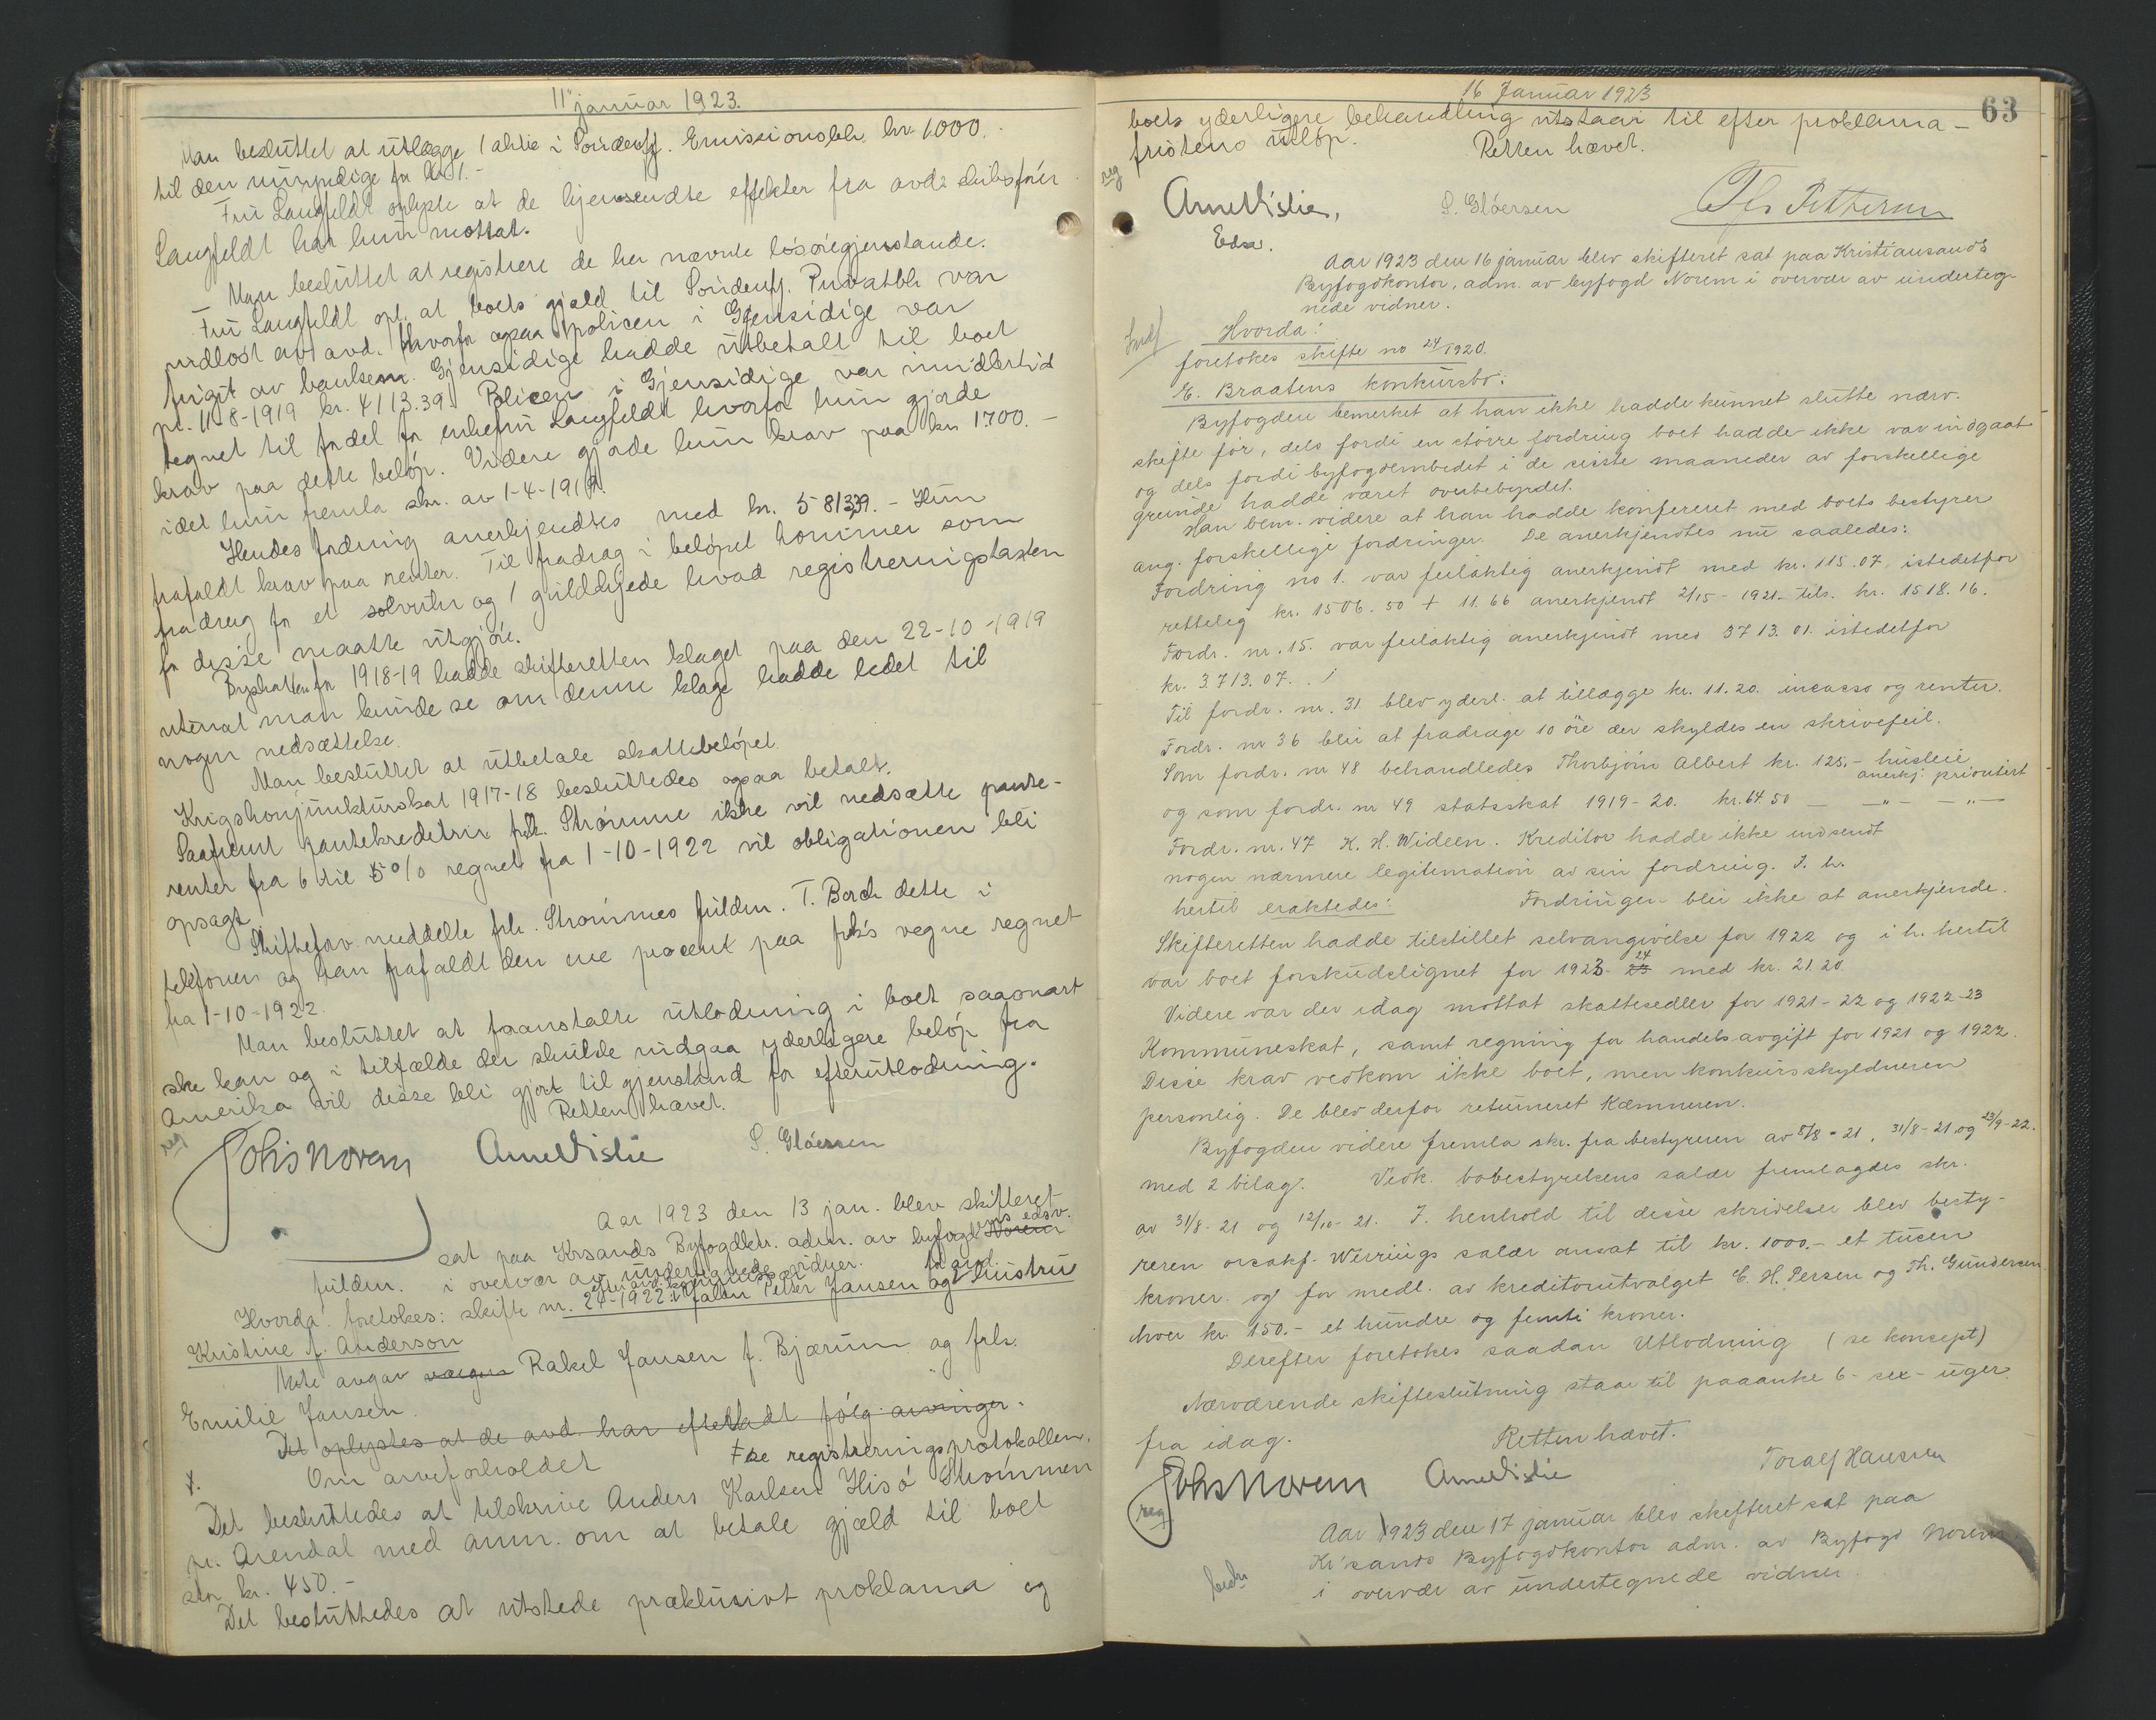 11 januar 1923.
Man besluttet at utlægge 1 aktie i Emissionsbk. kr. 1000.-
til den umyndige for kr. 1.-
Fru Langfeldt oplyste at de hjemsendte effekter fra avd. skibsfører
Langfeldt har hun mottat.
Man besluttet at registrere de her nævnte løsøregjenstande.
Fru Langfeldt opl. at boets gjæld til Privatbk. var
indløst av avd. hvorfor ogsaa policen i Gjensidige var
frigit av banken. Gjensidige hadde utbetalt til boet
pr. 11-8-1919 kr. 4113.39. Policen i Gjensidige var imidlertid
tegnet til fordel for enkefru Langfeldt hvorfor hun gjorde
krav paa dette beløp. Videre gjorde hun krav paa kr. 1700.-
idet hun fremla skr. av 1-4-191
Hendes fordring anerkjendtes med kr. 5813.39.- Hun
frafaldt krav paa renter. Til fradrag i beløpet kommer som
fradrag for et sølvuhr og 1 guldkjede hvad registreringstaksten
for disse maatte utgjøre.
Byskatten for 1918-19 hadde skifteretten klaget paa den 22-10-1919
uten at man kunde se om denne klage hadde ledet til
nogen nedsættelse.
Man besluttet at utbetale skattebeløpet.
Krigskonjunkturskat 1917-18 besluttedes ogsaa betalt.
Saafremt pantekreditrix frk. Strømme ikke vil nedsætte pante-
renter fra 6 til 5% regnet fra 1-10-1922 vil obligationen bli
opsagt.
Skifteforv. meddelte frk. Strømmes fuldm. T. Borch dette i
telefonen og han frafaldt den ene procent paa frk's vegne regnet
fra 1-10-1922.
Man besluttet at foranstalte utlodning i boet saasnart
ske kan og i tilfælde der skulde indgaa yderligere beløp fra
Amerika vil disse bli gjort til gjenstand for efterutlodning.
Retten hævet.
reg
Johs Norem Arne Vislie S. Gløersen
Aar 1923 den 13 jan. blev skifteret
sat paa Krsands Byfogdktr. adm. av byfogd Norem's edsv.
fuldm. i overvær av undertegnede vidner.
Hvorda foretokes: skifte nr. 24-1922 i Peter Jansen og hustru
Kristine f. Anderson
Møte avgav Rakel Jansen f. Bjærum og frk.
Emilie Jansen.
Det oplystes at de avd. har efterladt følg. arvinger.
Om arveforholdet se registreringsprotokollen.
Det besluttedes at tilskrive Anders Karlsen Hisø Strømmen
pr. Arendal med anm. om at betale gjæld til boet
stor kr. 450.-
Det besluttedes at utstede præklusivt proklama og
16 Januar 1923
63
boets yderligere behandling utstaar til efter proklama-
fristens utløp. Retten hævet.
reg
Arne Vislie, S. Gløersen
Edsv.
Aar 1923 den 16 januar blev skifteret sat paa Kristiansands
Byfogdkontor, adm. av byfogd Norem i overvær av underteg-
nede vidner.
Hvorda:
foretokes skifte no 24/1920.
E. Braatens konkursbo:
Byfogden bemerket at han ikke hadde kunnet slutte nærv.
skifte før, dels fordi en større fordring boet hadde ikke var indgaat
og dels fordi byfogdembedet i de siste maaneder av forskellige
grunde hadde været overbebyrdet.
Han bem. videre at han hadde konfereret med boets bestyrer
ang. forskellige fordringer. De anerkjendtes nu saaledes:
Fordring no 1. var feilaktig anerkjendt med kr. 115.07, istedetfor
rettelig kr. 1506.50 + 11.66 anerkjendt 2/15-1921- tils. kr. 1518.16.
Fordr. nr. 15. var feilaktig anerkjendt med 3713.01. istedetfor
kr. 3713.07.
Til fordr. nr. 31 blev yderl. at tillægge kr. 11.20. incasso og renter.
Fordr. nr 36 blir at fradrage 10 øre der skyldes en skrivefeil.
Som fordr. nr 48 behandledes Thorbjørn Albert kr. 125.- husleie
anerkj. prioritert
og som fordr. nr 49 statsskat 1919-20. kr. 64.50 — —"— —"—
Fordr. nr. 47 K. H. Wideen. Kreditor hadde ikke indsendt
nogen nærmere legitimation av sin fordring. I. h.
hertil eraktedes: Fordringen blir ikke at anerkjende.
Skifteretten hadde tilstillet selvangivelse for 1922 og i h. hertil
var boet forskudslignet for 1923-24 med kr. 21.20
Videre var der idag mottat skattesedler for 1921-22 og 1922-23
Kommuneskat, samt regning for handelsavgift for 1921 og 1922.
Disse krav vedkom ikke boet, men konkursskyldneren
personlig. De blev derfor returneret Kæmneren.
Byfogden videre fremla skr. fra bestyreren av 8/8-21, 31/8-21 og 23/9-22.
med 2 bilag. Vedk. bobestyrelsens salær fremlagdes skr.
av 31/8-21 og 12/10-21. I henhold til disse skrivelser blev besty-
reren orsakf. Werrings salær ansat til kr. 1000.- et tusen
kroner og for medl. av kreditorutvalget C. H. Persen og Th. Gundersen
hver kr. 150.- et hundre og femti kroner.
Derefter foretokes saadan Utlodning (se koncept)
Nærværende skifteslutning staar til paaanke 6- sex- uger.
fra idag. Retten hævet.
Johs Norem Arne Vislie Toralf Hansen
reg
Aar 1923 den 17 januar blev skifteret sat paa
Kr'sands Byfogdkontor adm. av Byfogd Norem
i overvær av undertegnede vidner.